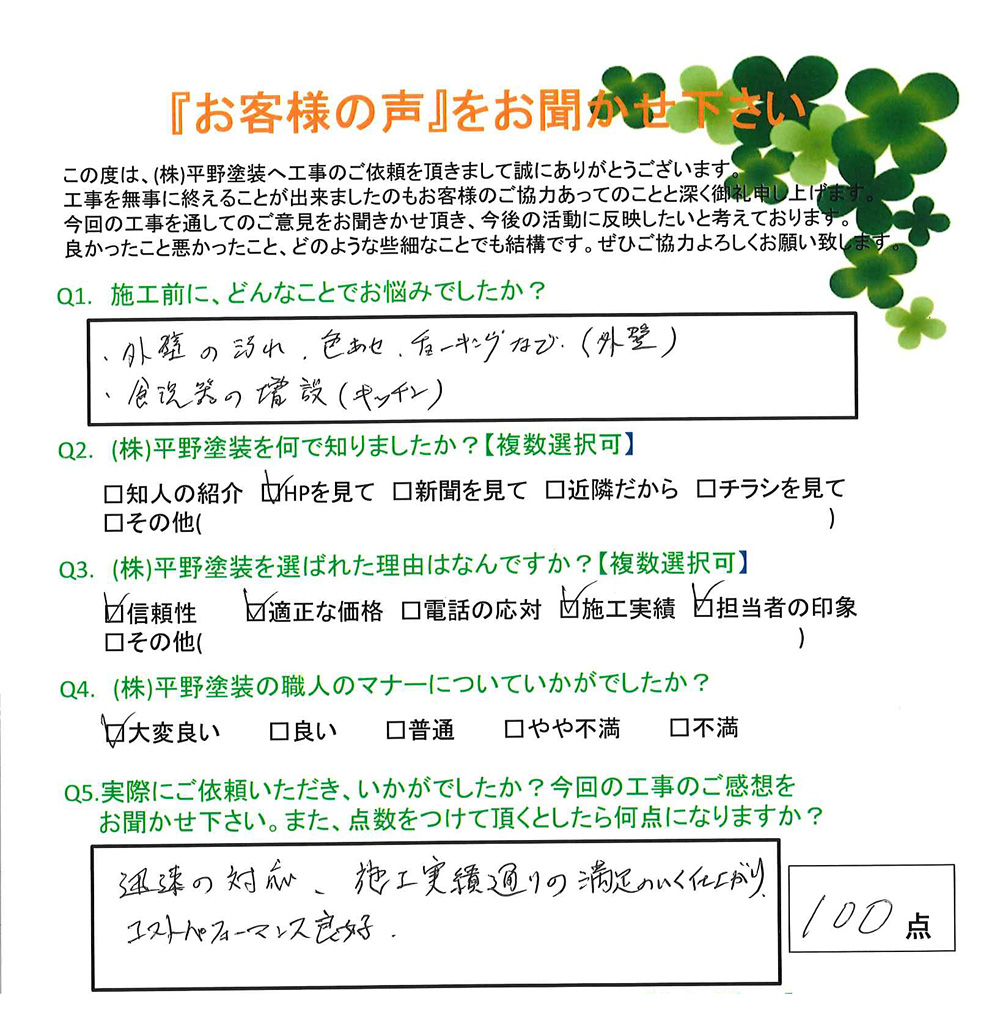 『お客様の声』をお聞かせ下さい
この度は、(株)平野塗装へ工事のご依頼を頂きまして誠にありがとうございます。
工事を無事に終えることが出来ましたのもお客様のご協力あってのことと深く御礼申し上げます。
今回の工事を通してのご意見をお聞きかせ頂き、今後の活動に反映したいと考えております。
良かったこと悪かったこと、どのような些細なことでも結構です。ぜひご協力よろしくお願い致します。
Q1. 施工前に、どんなことでお悩みでしたか？
・外壁の汚れ、色あせ、チョーキングなど（外壁）
・食洗器の増設（キッチン）
Q2. (株)平野塗装を何で知りましたか？【複数選択可】
□知人の紹介 ☑HPを見て □新聞を見て □近隣だから □チラシを見て
□その他( )
Q3. (株)平野塗装を選ばれた理由はなんですか？【複数選択可】
☑信頼性 ☑適正な価格 □電話の応対 ☑施工実績 ☑担当者の印象
□その他( )
Q4. (株)平野塗装の職人のマナーについていかがでしたか？
☑大変良い □良い □普通 □やや不満 □不満
Q5.実際にご依頼いただき、いかがでしたか？今回の工事のご感想を
お聞かせ下さい。また、点数をつけて頂くとしたら何点になりますか？
迅速の対応、施工実績通りの満足のいく仕上がり、
コストパフォーマンス良好.
100点